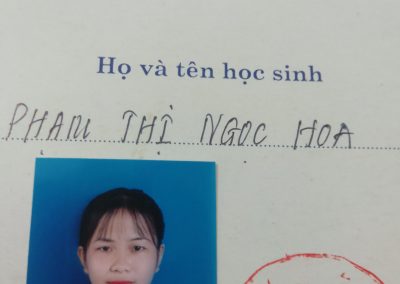 Họ và tên học sinh
PHẠM THỊ NGỌC HOA